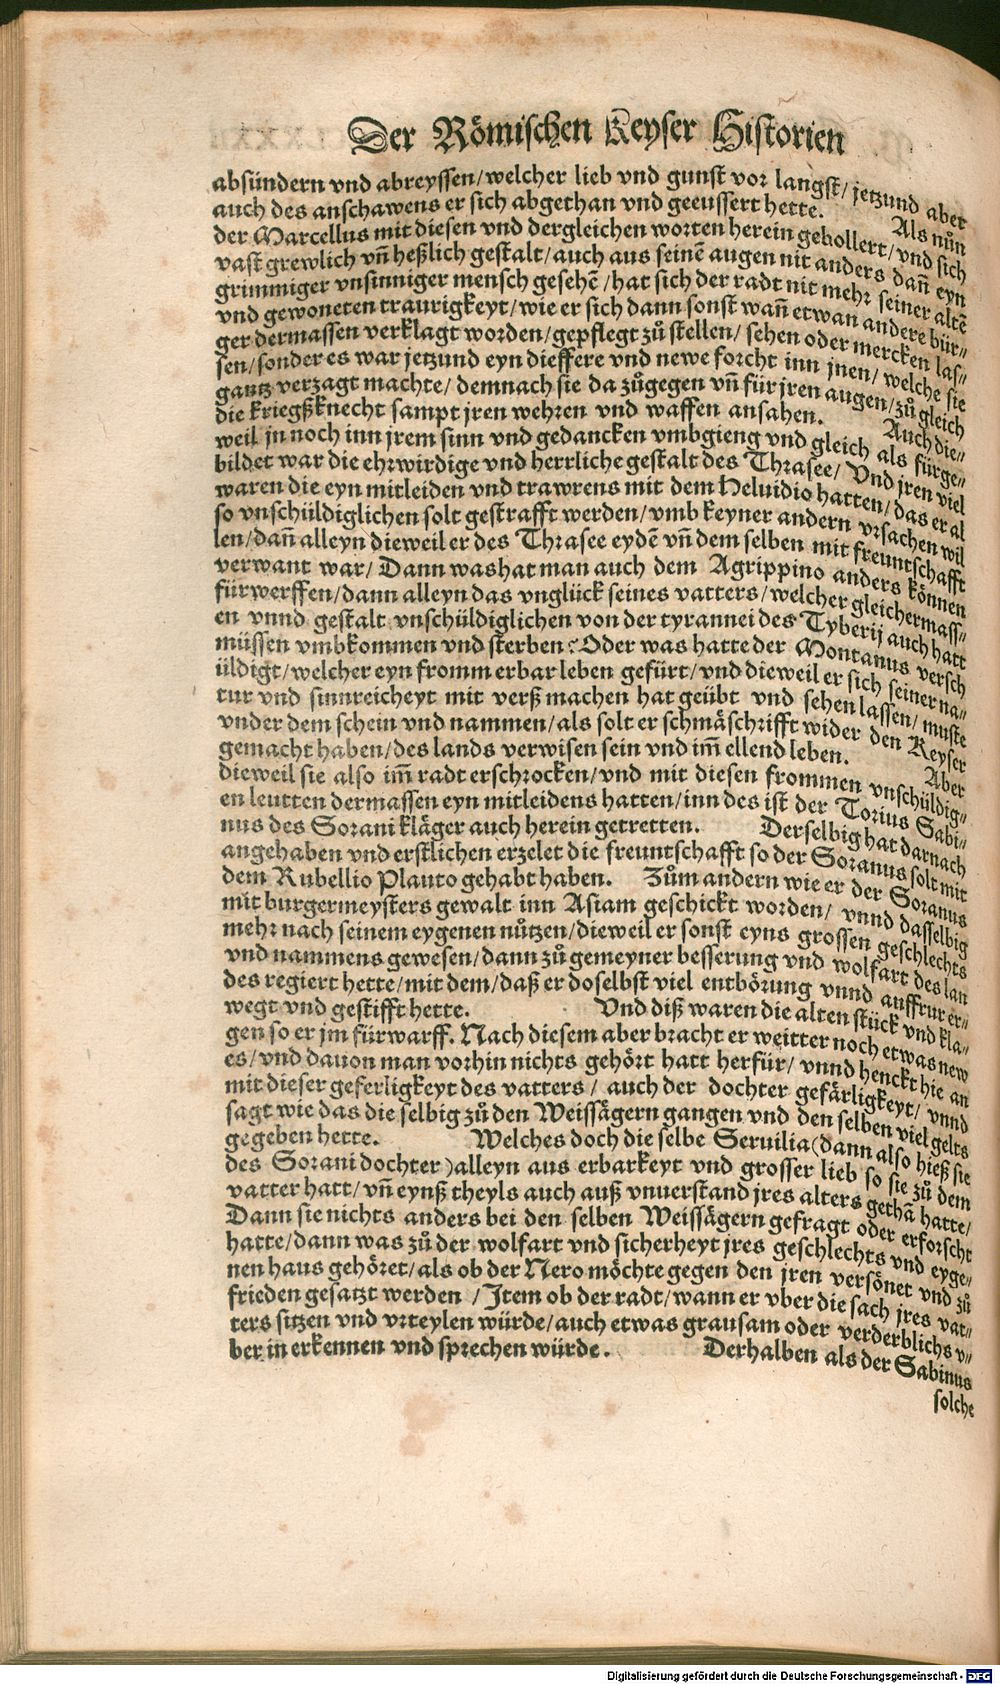 Der Römischen Keyser Historien
absündern vnd abreyssen/welcher lieb vnd gunst vor langst/jetzund aber
auch des anschawens er sich abgethan vnd geeussert hette. Als nůn
der Marcellus mit diesen vnd dergleichen worten herein gebollert/vnd sich
vast grewlich vñ heßlich gestalt/auch aus seinē augen nit anders dañ eyn
grimmiger vnsinniger mensch gesehē/hat sich der radt nit mehr seiner altē
vnd gewoneten traurigkeyt/wie er sich dann sonst wañ etwan andere bür⸗
ger dermassen verklagt worden/gepflegt zů stellen/sehen oder mercken las⸗
sen/sonder es war jetzund eyn dieffere vnd newe forcht inn jnen/welche sie
gantz verzagt machte/demnach sie da zůgegen vñ für jren augen/zů gleich
die kriegßknecht sampt jren wehren vnd waffen ansahen. Auch die⸗
weil jn noch inn jrem sinn vnd gedancken vmbgieng vnd gleich als fürge⸗
bildet war die ehrwirdige vnd herrliche gestalt des Thrasee/Vnd jren viel
waren die eyn mitleiden vnd trawrens mit dem Heluidio hatten/das er al
so vnschüldiglichen solt gestrafft werden/vmb keyner andern vrsachen wil
len/dañ alleyn dieweil er des Thrasee eydē vñ dem selben mit freuntschafft
verwant war/Dann was hat man auch dem Agrippino anders können
fürwerffen/dann alleyn das vnglück seines vatters/welcher gleichermass⸗
en vnnd gestalt vnschüldiglichen von der tyrannei des Tyberij auch hatt
müssen vmbkommen vnd sterben? Oder was hatte der Montanus versch
üldigt/welcher eyn fromm erbar leben gefürt/vnd dieweil er sich seiner na⸗
tur vnd sinnreicheyt mit verß machen hat geübt vnd sehen lassen/muste
vnder dem schein vnd nammen/als solt er schmäschrifft wider den Keyser
gemacht haben/des lands verwisen sein vnd im̃ ellend leben. Aber
dieweil sie also im̃ radt erschrocken/vnd mit diesen frommen vnschüldig⸗
en leutten dermassen eyn mitleidens hatten/inn des ist der Torius Sabi⸗
nus des Sorani kläger auch herein getretten. Derselbig hat darnach
angehaben vnd erstlichen erzelet die freuntschafft so der Soranus solt mit
dem Rubellio Plauto gehabt haben. Zům andern wie er der Soranus
mit burgermeysters gewalt inn Asiam geschickt worden/vnnd dasselbig
mehr nach seinem eygenen nůtzen/dieweil er sonst eyns grossen geschlechts
vnd nammens gewesen/dann zů gemeyner besserung vnd wolfart des lan
des regiert hette/mit dem/daß er doselbst viel entbörung vnnd auffrur er⸗
wegt vnd gestifft hette. Vnd diß waren die alten stück vnd kla⸗
gen so er jm fürwarff. Nach diesem aber bracht er weitter noch etwas new
es/vnd dauon man vorhin nichts gehört hatt herfür/vnnd henckt hie an
mit dieser geferligkeyt des vatters/auch der dochter gefärligkeyt/vnnd
sagt wie das die selbig zů den Weissägern gangen vnd den selben viel gelts
gegeben hette. Welches doch die selbe Seruilia(dann also hieß sie
des Sorani dochter)alleyn aus erbarkeyt vnd grosser lieb so sie zů dem
vatter hatt/vñ eynß theyls auch auß vnuerstand jres alters gethā hatte/
Dann sie nichts anders bei den selben Weissägern gefragt oder erforscht
hatte/dann was zů der wolfart vnd sicherheyt jres geschlechts vnd eyge⸗
nen haus gehöret/als ob der Nero möchte gegen den jren versönet vnd zů
frieden gesatzt werden/Item ob der radt/wann er vber die sach jres vat⸗
ters sitzen vnd vrteylen würde/auch etwas grausam oder verderblichs v⸗
ber in erkennen vnd sprechen würde. Derhalben als der Sabinus
solche
Digitalisierung gefördert durch die Deutsche Forschungsgemeinschaft - DFG